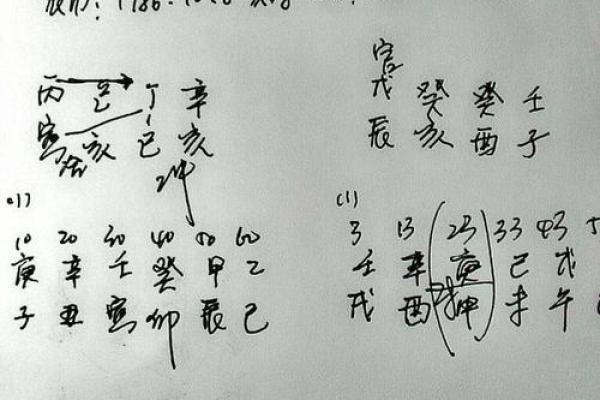 官
丙 己 丁 辛
戊 癸 癸 壬
寅 亥 巳 亥
辰 亥 酉 子
合
冲
(1)
(1)
10 20 30 40 50 60
3 13 23 33 43
庚 辛 壬 癸 甲 乙
壬 辛 庚 己 戊
子 丑 寅 卯 辰 巳
戌 酉 申 未 午